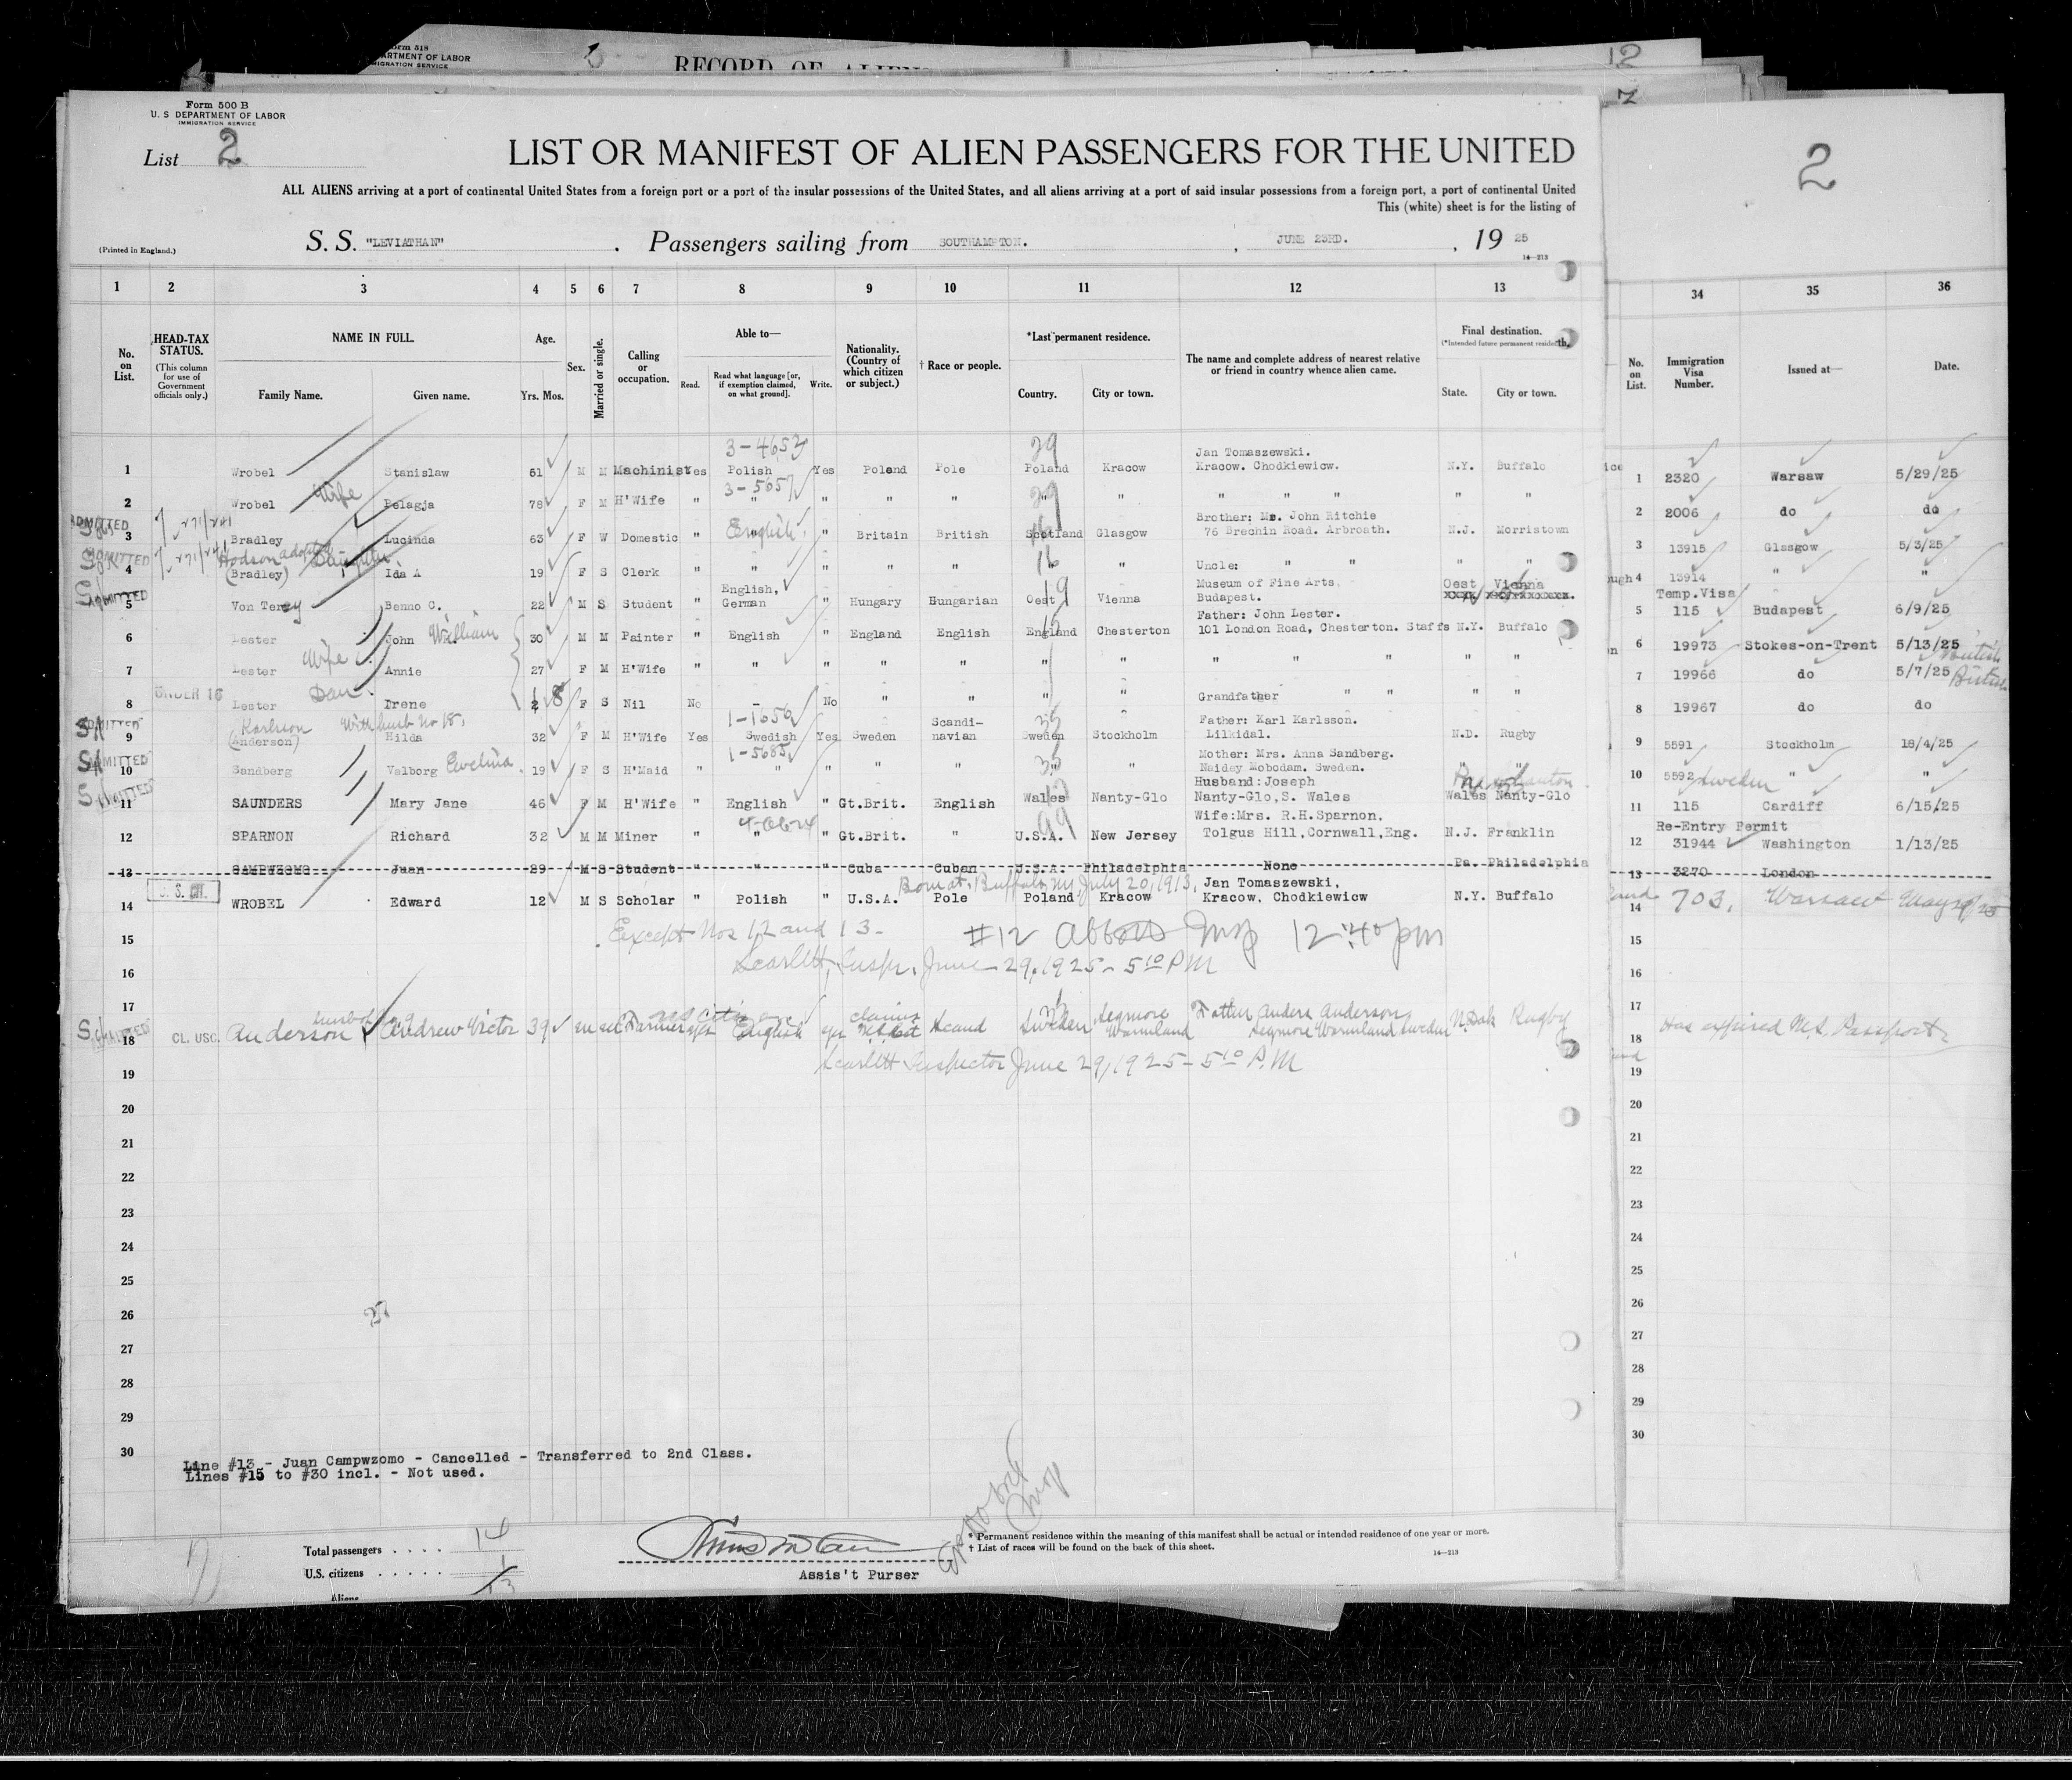 Form 518
DEPARTMENT OF LABOR
IMMIGRATION SERVICE
RECORD OF ALIENS
12
Form 500 B
U. S DEPARTMENT OF LABOR
IMMIGRATION SERVICE
List 2
LIST OR MANIFEST OF ALIEN PASSENGERS FOR THE UNITED
2
ALL ALIENS arriving at a port of continental United States from a foreign port or a port of the insular possessions of the United States, and all aliens arriving at a port of said insular possessions from a foreign port, a port of continental United
This (white) sheet is for the listing of
(Printed in England.) S. S. "LEVIATHAN" . Passengers sailing from SOUTHAMPTON. , JUNE 23RD. , 19 25
14—213
1 2 3 4 5 6 7 8 9 10 11 12 13 34 35 36
No. on List. HEAD-TAX STATUS. (This column for use of Government officials only.) NAME IN FULL. Family Name. Given name. Age. Yrs. Mos. Sex. Married or single. Calling or occupation. Able to— Read. Read what language [or, if exemption claimed, on what ground]. Write. Nationality. (Country of which citizen or subject.) † Race or people. *Last permanent residence. Country. City or town. The name and complete address of nearest relative or friend in country whence alien came. Final destination. (*Intended future permanent residence) State. City or town. No. on List. Immigration Visa Number. Issued at— Date.
3-4652 29 Jan Tomaszewski.
1 Wrobel Stanislaw 51 M M Machinist Yes Polish Yes Poland Pole Poland Kracow Kracow. Chodkiewicw. N.Y. Buffalo 1 2320 Warsaw 5/29/25
3-5657 29
2 Wrobel Wife Pelagja 78 F M H'Wife " " " " " " " " " " " " 2 2006 do do
ADMITTED Brother: Mr. John Ritchie
3 Bradley Lucinda 63 F W Domestic " English " Britain British Scotland Glasgow 76 Brechin Road. Arbroath. N.J. Morristown 3 13915 Glasgow 5/3/25
ADMITTED Hodson adopted Daughter
4 (Bradley) Ida A 19 F S Clerk " " " " " " " Uncle: " " " " 4 13914 " "
ADMITTED English, 19 Museum of Fine Arts. Oest Vienna Temp.Visa
5 Von Terey Benno C. 22 M S Student " German " Hungary Hungarian Oest Vienna Budapest. 5 115 Budapest 6/9/25
Father: John Lester.
6 Lester John William 30 M M Painter " English " England English England Chesterton 101 London Road, Chesterton. Staffs N.Y. Buffalo 6 19973 Stokes-on-Trent 5/13/25 British
7 Lester Wife Annie 27 F M H'Wife " " " " " " " " " " " " 7 19966 do 5/7/25 British
UNDER 16
8 Lester Dau. Irene 1 8 F S Nil No - No " " " " Grandfather " " " " 8 19967 do do
ADMITTED Karlsson With husb No 18. 1-1656 Scandi- Father: Karl Karlsson.
9 (Anderson) Hilda 32 F M H'Wife Yes Swedish Yes Sweden navian Sweden Stockholm Lilkidal. N.D. Rugby 9 5591 Stockholm 18/4/25
ADMITTED 1-5685 Mother: Mrs. Anna Sandberg.
10 Sandberg Valborg Ewelina 19 F S H'Maid " " " " " " " Naidey Mobodam. Sweden. " " 10 5592 Sweden " "
ADMITTED Husband:Joseph
11 SAUNDERS Mary Jane 46 F M H'Wife " English " Gt.Brit. English Wales Nanty-Glo Nanty-Glo,S. Wales Wales Nanty-Glo 11 115 Cardiff 6/15/25
99 Wife:Mrs. R.H.Sparnon, Re-Entry Permit
12 SPARNON Richard 32 M M Miner " " " Gt.Brit. " U.S.A. New Jersey Tolgus Hill,Cornwall,Eng. N.J. Franklin 12 31944 Washington 1/13/25
13 CAMPWZOMO Juan 29 M S Student " " " Cuba Cuban U.S.A. Philadelphia None Pa. Philadelphia 13 3270 London
Born at Buffalo NY July 20, 1913. Jan Tomaszewski,
14 U. S. CIT. WROBEL Edward 12 M S Scholar " Polish " U.S.A. Pole Poland Kracow Kracow, Chodkiewicw N.Y. Buffalo 14 703. Warsaw May 29/25
15 Except Nos 12 and 13- #12 Abbott Insp 12:40 pm 15
16 Scarlett, Inspr. June 29, 1925- 5 10 PM 16
17 husb of no 9 US citizen claims 17
18 ADMITTED CL. USC. Anderson Andrew Victor 39 m Farmer yes English yes US cit Scand Sweden Segmore Warmland Father Anders Anderson Segmore Warmland Sweden N. Dak Rugby 18 Has expired U.S. Passport
19 Scarlett Inspector June 29, 1925- 5 10 P.M 19
20 20
21 21
22 22
23 23
24 24
25 25
26 26
27 27
28 28
29 29
30 30
Line #13 - Juan Campwzomo - Cancelled - Transferred to 2nd Class.
Lines #15 to #30 incl. - Not used.
Total passengers . . . . 14
U.S. citizens . . . . . . 1
Aliens 13
Assis't Purser
* Permanent residence within the meaning of this manifest shall be actual or intended residence of one year or more.
† List of races will be found on the back of this sheet.
14—213